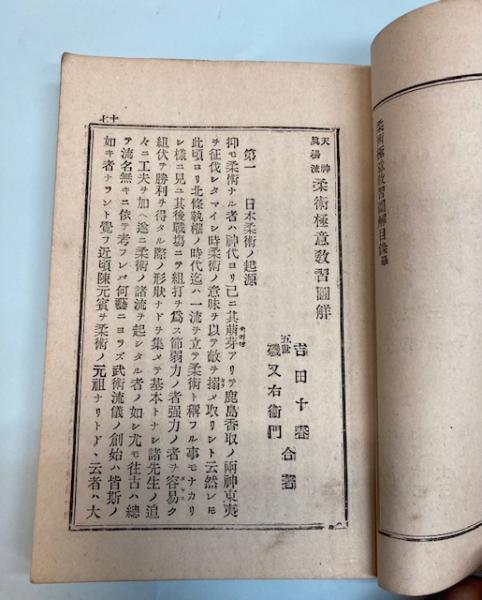 柔術極意敎習圖解目錄畢
天神
眞揚流
柔術極意敎習圖解
吉田千春
五世
磯又右衛門
合著
第一 日本柔術ノ起源
抑モ柔術ナル者ハ神代ヨリ已ニ其萠芽アリテ鹿島香取ノ兩神東夷
ヲ征伐シタマイシ時柔術ノ意味ヲ以テ敵ヲ搦メ取リシト云然レ𪜈
此頃ヨリ北條執權ノ時代迄ハ一流ヲ立テ柔術ト稱フル事モナカリ
シ樣ニ見ユ其後戰塲ニテ組打ヲ爲ス節弱力ノ者强力ノ者ヲ容易ク
組伏テ勝利ヲ得タル際ノ形狀ナドヲ集メテ基本トナシ諸先生ノ追
々ニ工夫ヲ加ヘ遂ニ柔術ノ諸流ヲ起シタル者ノ如シ尤モ往古ハ總
テ流名無キニ依テ考フレバ何藝ニヨラズ武術流儀ノ創始ハ皆斯ノ
如キ者ナラント覺フ近頃陳元贇ヲ柔術ノ元祖ナリト云者ハ大
十七